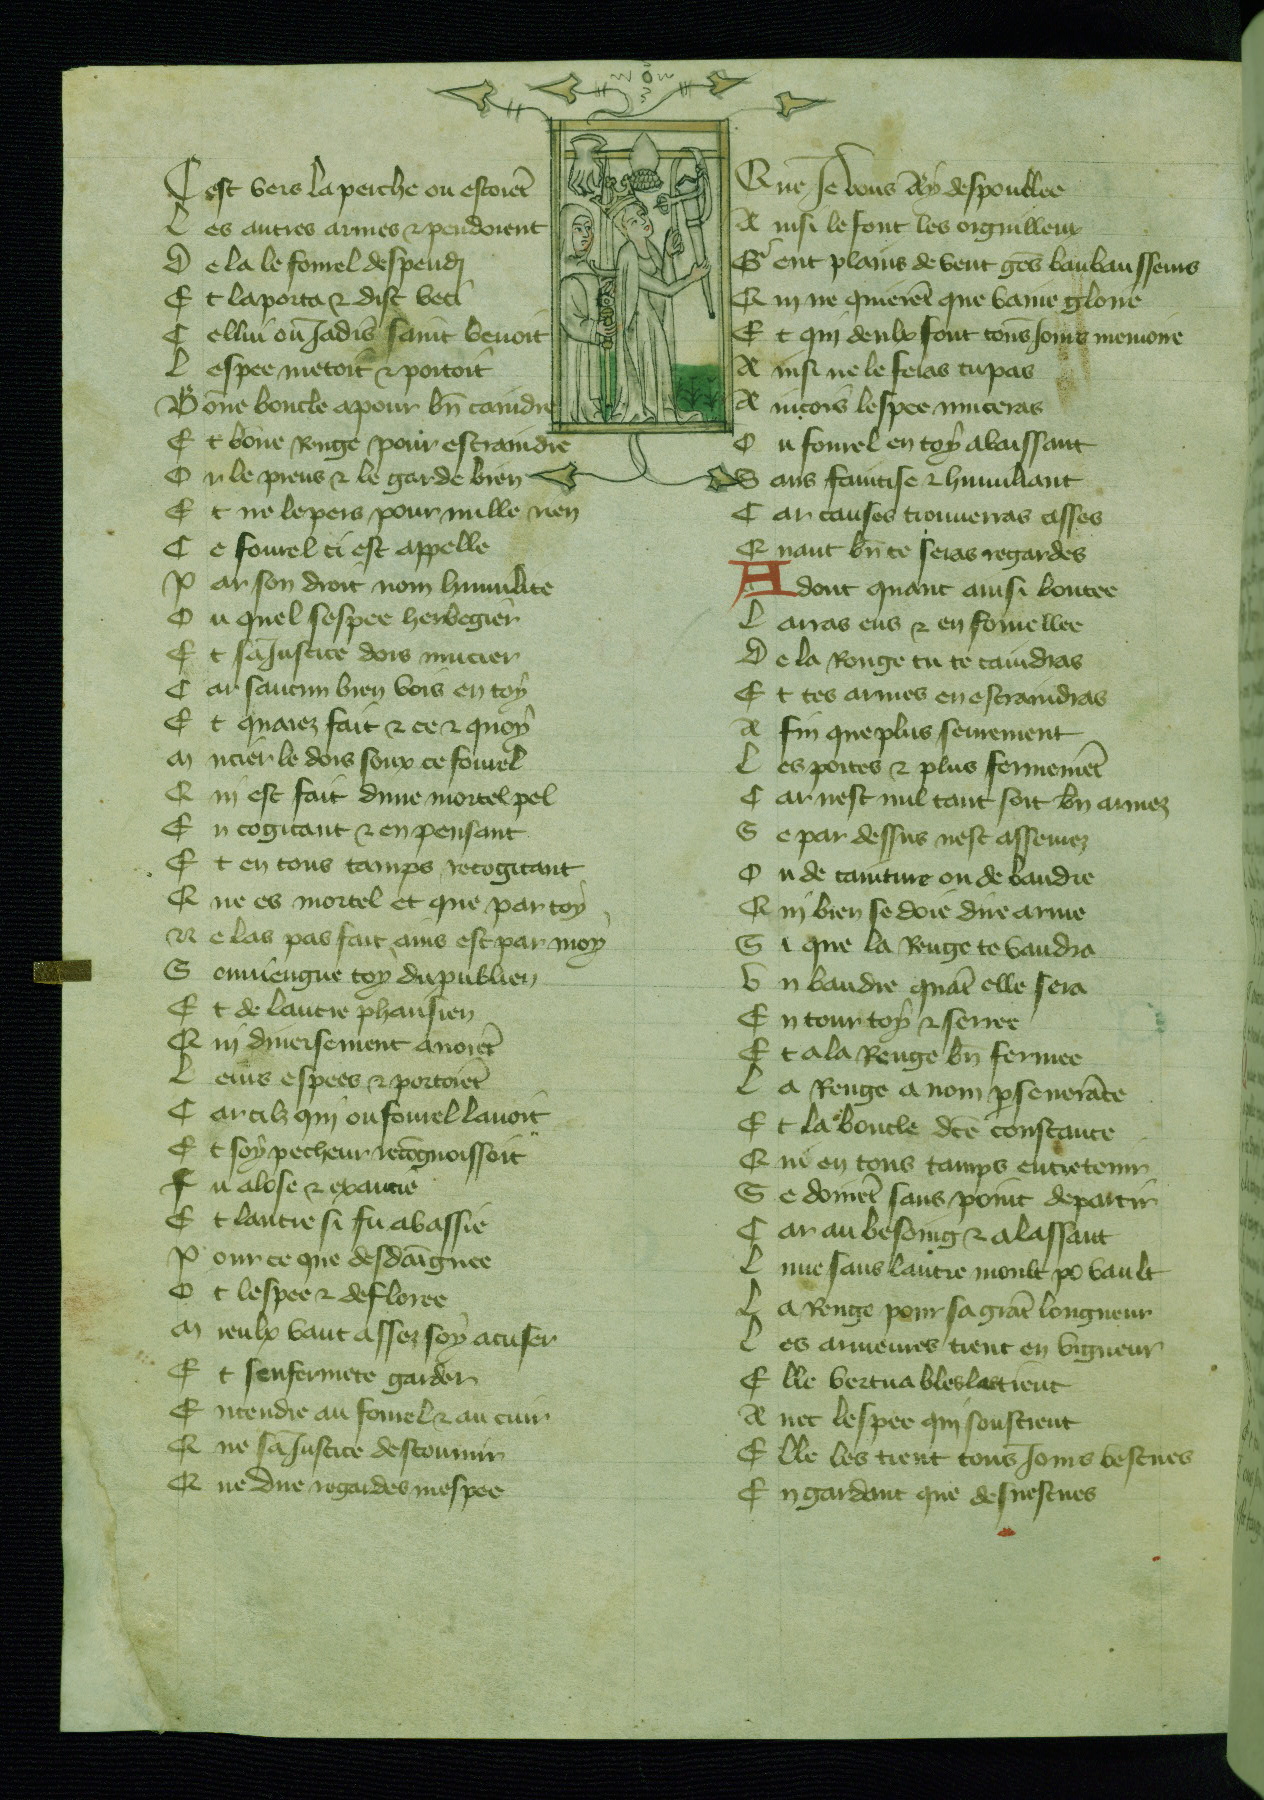 C est vers la perche ou estoiēt
L es autres armes ⁊ pendoient
D e la le fourrel despendi
E t laporta ⁊ dist veci
C ellui ou Jadis saint benoit
L espee metoit ⁊ portoit
B one boucle a pour bn̄ caindre
E t bone Renge pour estraindre
O r le prens ⁊ le garde bien
E t ne le pers pour nulle rien
C e fourrel ci est appelle
P ar son droit nom humilite
O u quel tespee herbegier
E t ta Justice dois mucier
C ar saucun bien vois en toy
E t quaiez fait ⁊ ce ⁊ quoy
M ucier le dois soux ce fourrel
Q ui est fait dune mortel pel
E n cogitant ⁊ en pensant
E t en tous tamps recogitant
Q ue es mortel et que par toy
N e las pas fait ains est par moy
S ouuiengne toy du publien
E t de lautre pharisien
Q ui diuersement auoiēt
L eurs espees ⁊ portoiēt
C ar cilz qui ou fourrel lauoit
E t soy pecheur recōgnoissoit
F u alose ⁊ exaucie
E t lautre si fu abassie
P our ce que desdaīgnee
O t lespee ⁊ defloree
M ieulx vaut assez soy acuser
E t senfermete garder
E ntendre au fourrel ⁊ au cuir
Q ue sa Justice descouurir
Q ue dire regardes mespee
Q ue Je vous ay despoullee
A insi le font les orguilleux
Et ent plains de vent ges baubansseurs
Q ui ne quierēt que vaine gloire
E t qui deulx soit tous Jours memoire
A insi ne le feras tu pas
A incois lespee muceras
O u fourrel en toy abaissant
S ans faintise ⁊ humiliant
C ar causes trouuerras asses
Q uant bn̄ te seras regardes
A dont quant ainsi boutee
L arras ens ⁊ en fourrellee
D e la Renge tu te caindras
E t tes armes en estraindras
A fin que plus seurement
L es portes ⁊ plus fermemēt
C ar nest nul tant soit bn̄ armez
S e par dessus nest assemez
O u de cainture ou de baudre
Q ui bien se doie dire arme
S i que la Renge te vaudra
V n baudre quāt elle sera
E n tour toy ⁊ serree
E t a la Renge bn̄ fermee
L a Renge a nom p̄seuerāce
E t la boucle dc̄e constance
Q ui en tous tamps entretenir
S e doiuēt sans point departir
C ar au besoing ⁊ alassaut
L une sans lautre moult po vault
L a Renge pour sa grāt longueur
L es armeures tient en vigueur
E lle vertuables les tient
A uec lespee qui soustient
E lle les tient tous Jours vestues
E n gardant que desuestues